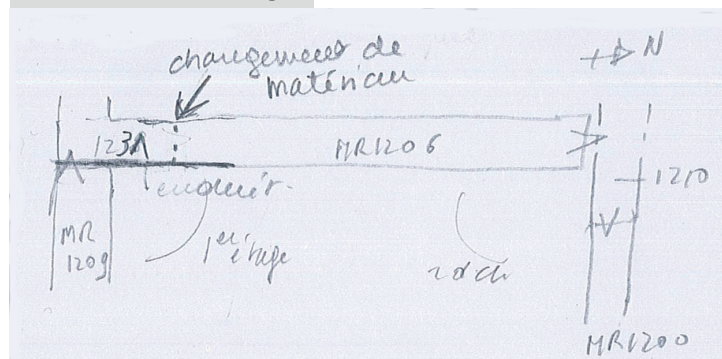 changement de
matériau
N
1231
MR1206
1210
MR
1209
1er étage
MR1200